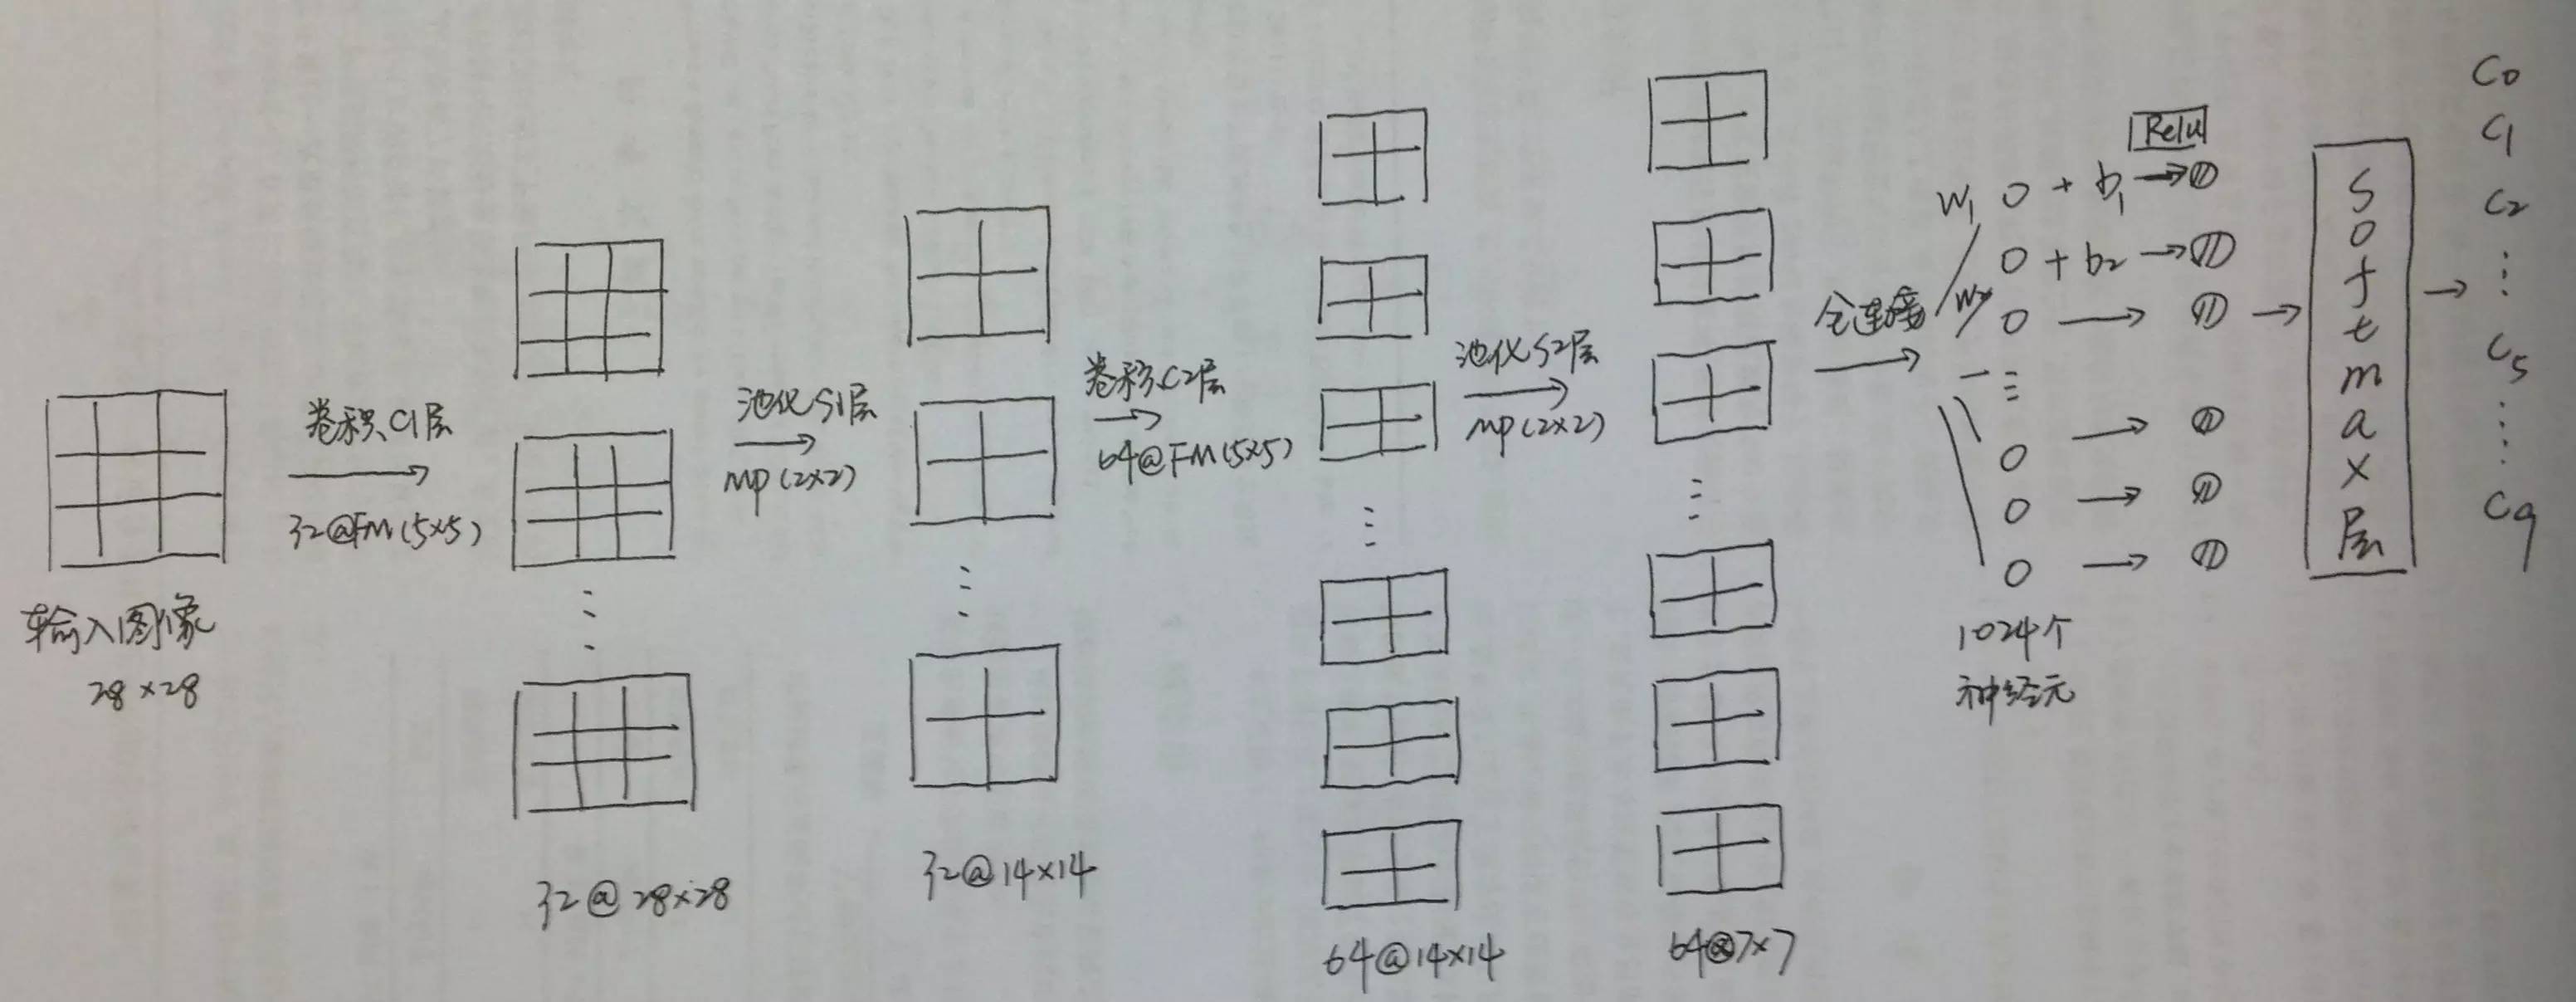 输入图像
28×28
卷积C1层
32@FM(5×5)
32@28×28
池化S1层
MP(2×2)
32@14×14
卷积C2层
64@FM(5×5)
64@14×14
池化S2层
MP(2×2)
64@7×7
全连接
W1 O + b1 →
W2 O + b2 →
1024个
神经元
Relu
Softmax层
C0
C1
C2
⋮
C5
⋮
C9